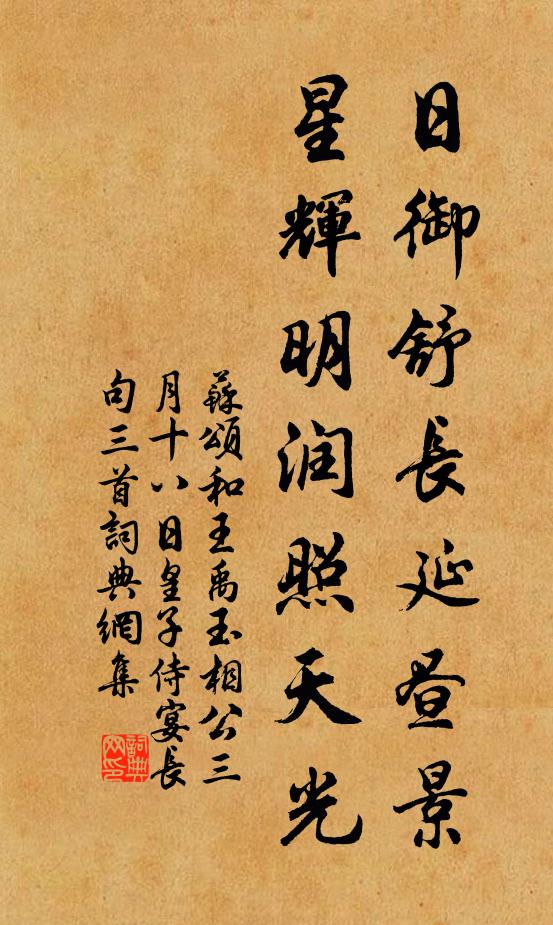 日御舒長延昼景
星輝明润照天光
蘇頌和王禹玉相公三
月十八日皇子侍宴長
句三首詞典網集
詞典网印